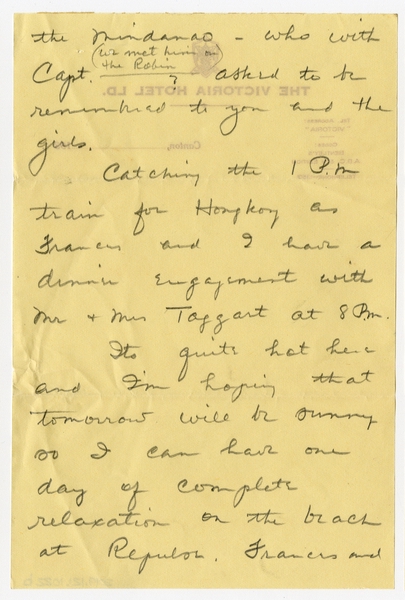 the Mindanao - who with
(we met him on
the Robin)
Capt. ? asked to be
remembered to you and the
girls.
Catching the 1 P.m
train for Hongkog as
Frances and I have a
dinner engagement with
Mr + Mrs Taggart at 8 P.m.
Its quite hot here
and I'm hoping that
tomorrow will be sunny
so I can have one
day of complete
relaxation on the beach
at Repulse. Frances and
THE VICTORIA HOTEL LD.
Canton,